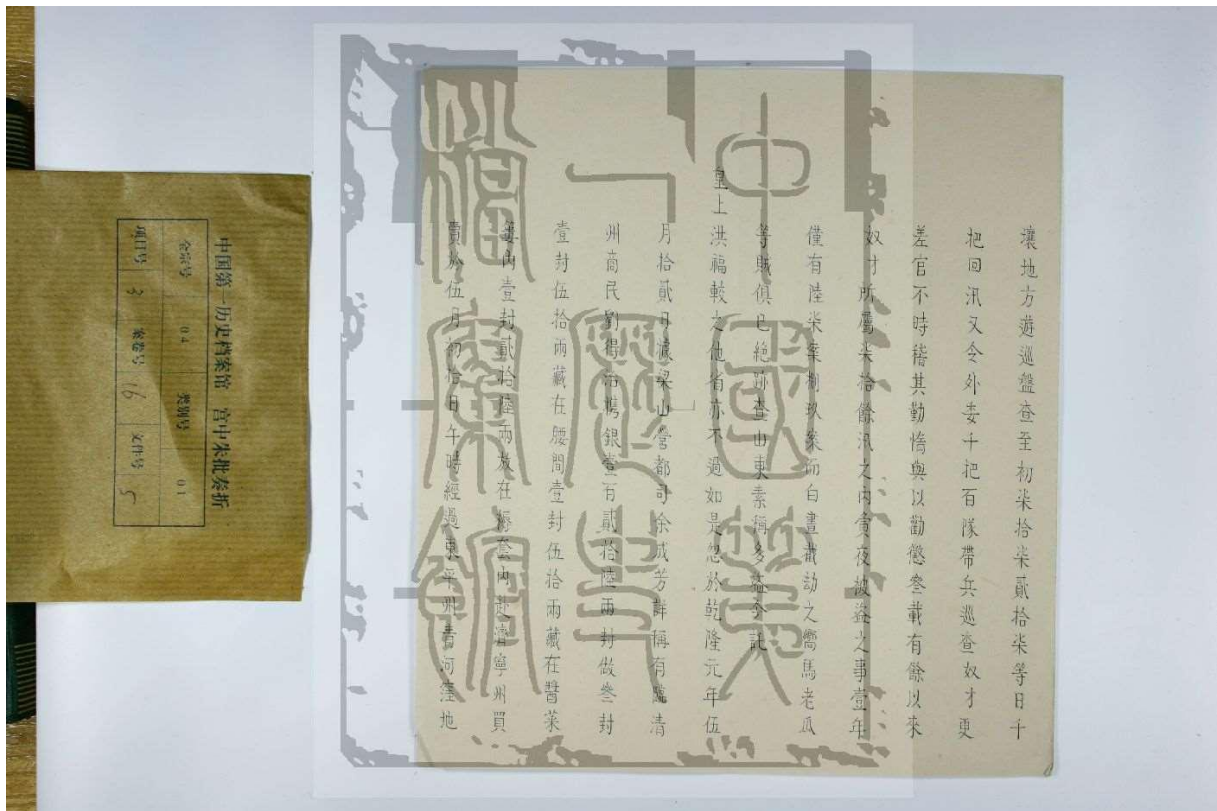 壤地方遊巡盤查至初柒拾柒貳拾柒等日千
把回汛又令外委千把百隊帶兵巡查奴才更
差官不時稽其勤惰與以勸懲叁載有餘以來
奴才所屬柒拾餘汛之内黄夜被盜之事壹年
僅有陸柒案捌玖案而白晝截劫之嚮馬老瓜
等賊俱已絶跡查山東素稱多盜今託
皇上洪福較之他省亦不過如是忽於乾隆元年伍
月拾貳日據梁山營都司余成芳詳稱有臨清
州商民劉得治携銀壹百貳拾陸兩封做叁封
壹封伍拾兩藏在腰間壹封伍拾兩藏在醬菜
簍内壹封貳拾陸兩放在褥套内赴濟寧州買
賣於伍月初拾日午時經過東平州青河窪地
中国第一历史档案馆 宫中朱批奏折
全宗号 04 类别号 01
项目号 3 案卷号 16 文件号 5
中國第一歷史檔案館